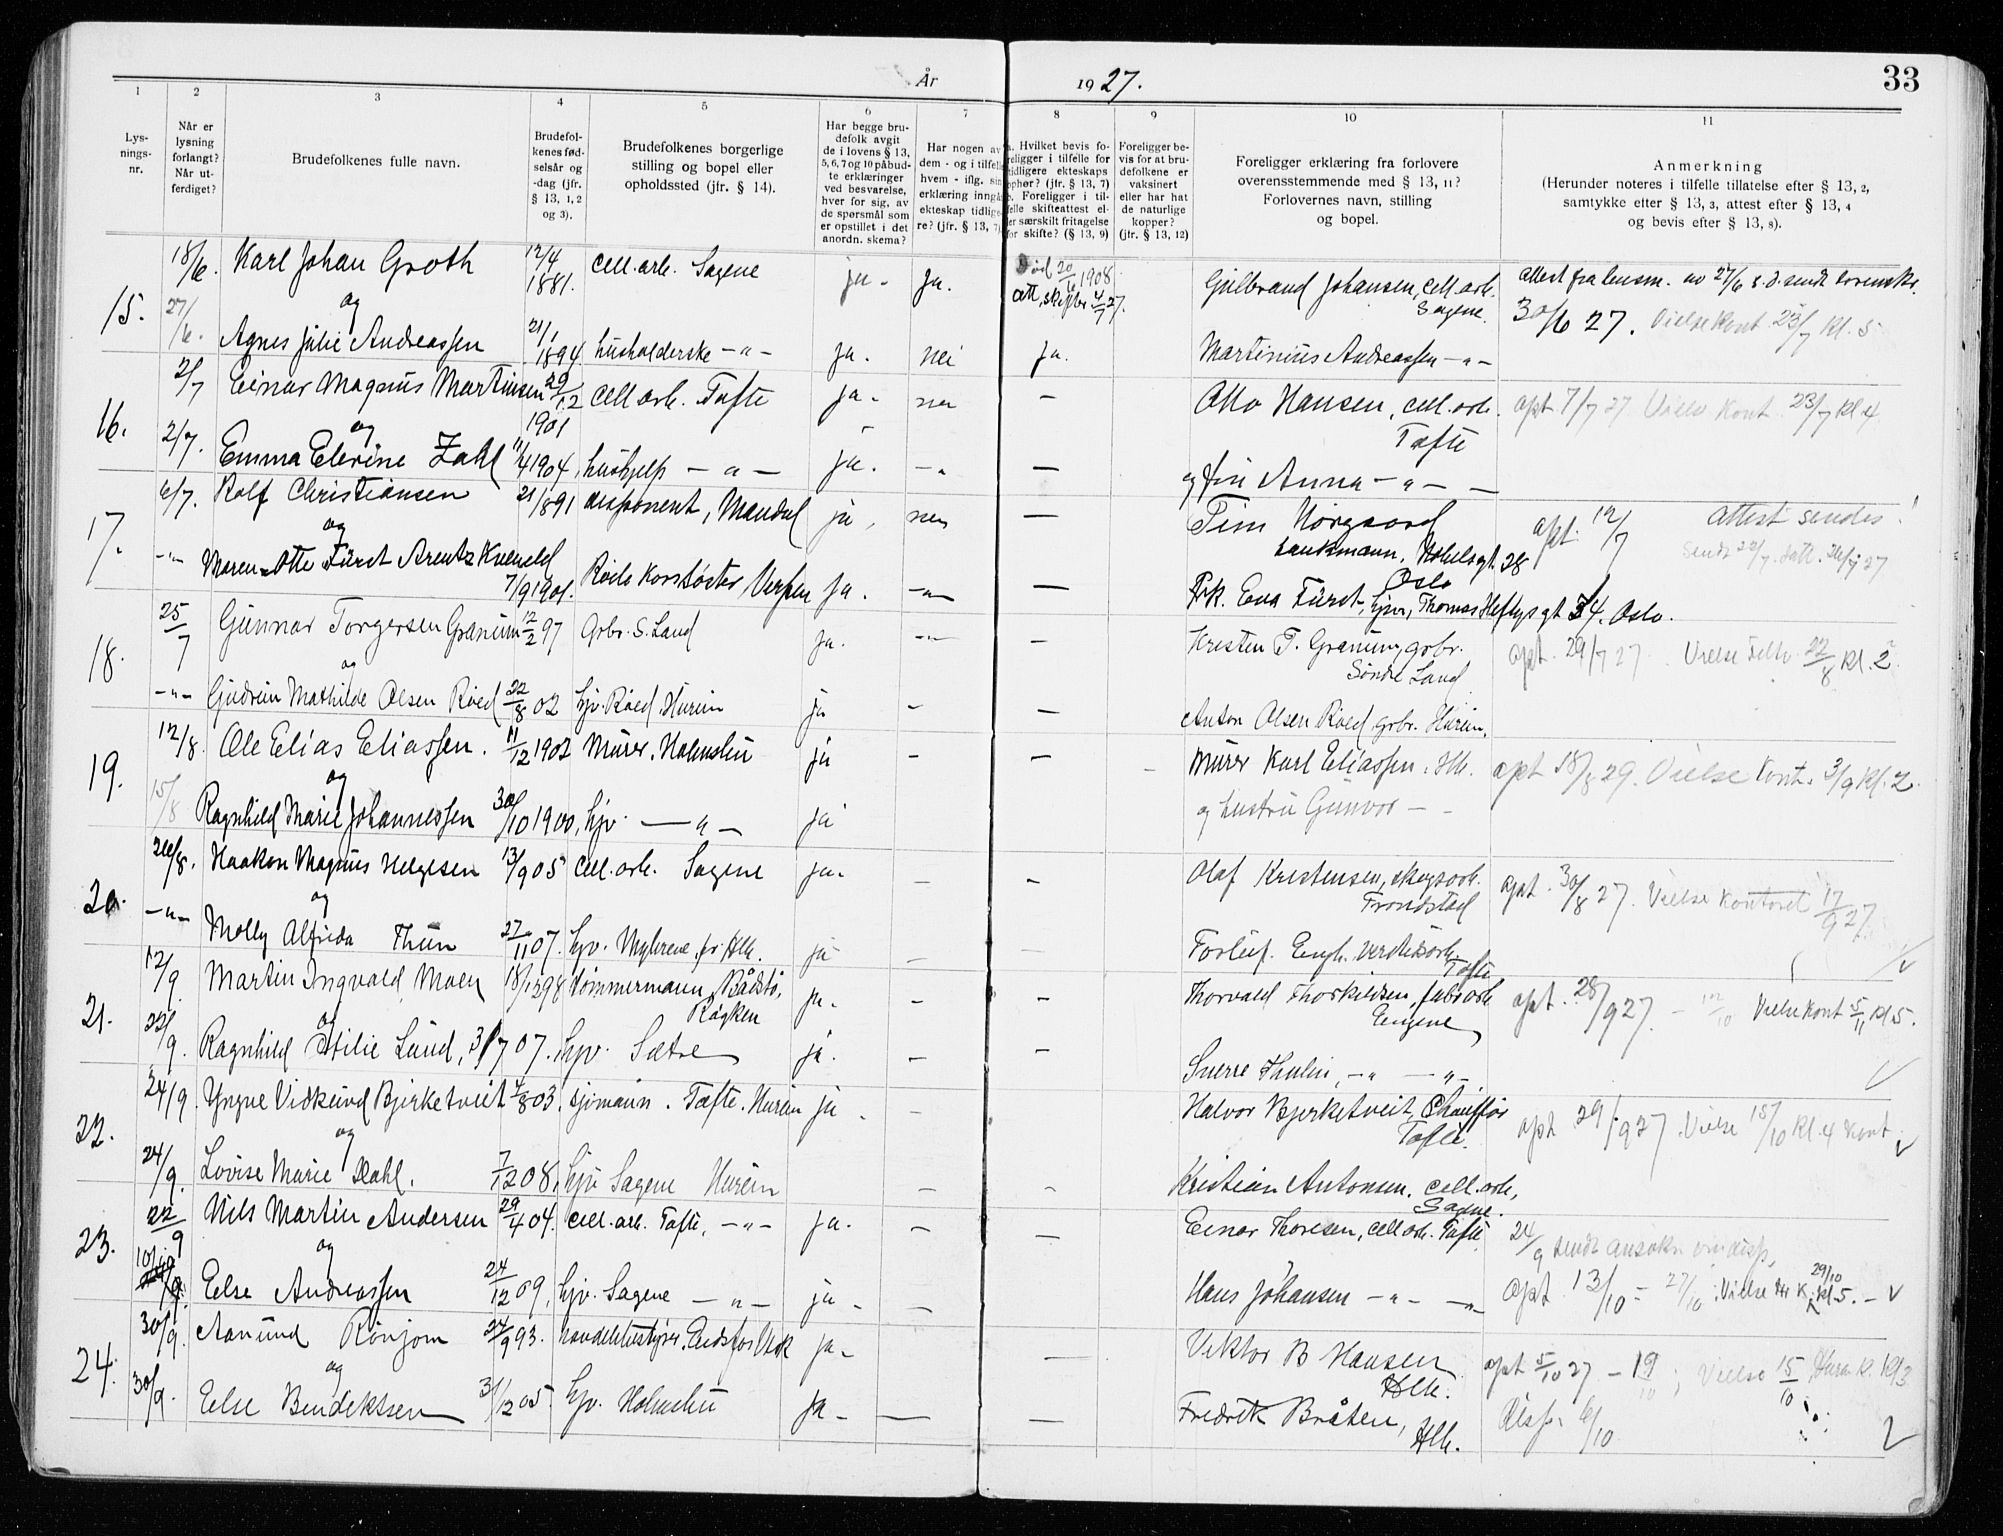 År 1927. 33
1 2 3 4 5 6 7 8 9 10 11
Lysnings-nr.
Når er lysning forlangt? Når utferdiget?
Brudefolkenes fulle navn.
Brudefolkenes fødselsår og -dag (jfr. § 13, 1, 2 og 3).
Brudefolkenes borgerlige stilling og bopel eller opholdssted (jfr. § 14).
Har begge brudefolk avgit de i lovens § 13, 5, 6, 7 og 10 påbudte erklæringer ved besvarelse, hver for sig, av de spørsmål som er opstillet i det anordn. skema?
Har nogen av dem - og i tilfelle hvem - iflg. sin erklæring inngått ekteskap tidligere? (jfr. § 13, 7).
a. Hvilket bevis foreligger i tilfelle for tidligere ekteskaps ophør? (jfr. § 13, 7)
b. Foreligger i tilfelle skifteattest eller særskilt fritagelse for skifte? (§ 13, 9)
Foreligger bevis for at brudefolkene er vaksinert eller har hat de naturlige kopper? (jfr. § 13, 12)
Foreligger erklæring fra forlovere overensstemmende med § 13, 11? Forlovernes navn, stilling og bopel.
Anmerkning
(Herunder noteres i tilfelle tillatelse efter § 13, 2, samtykke efter § 13, 3, attest efter § 13, 4 og bevis efter § 13, 8).
18/6. Karl Johan Groth 12/4 1881. cell.arb. Sagene ja. Ja. Død 20/6 1908. att. skifter 4/7 27. Gulbrand Johansen, cell.arb. Sagene. attest fra lensm. av 27/6 s.d. sendt
15. og 30/6 27. Vielse kont 23/7 kl. 5
27/6. Agnes Julie Andreassen 21/1 1894 husholderske -"- Ja. nei Ja. Martinius Andreassen -"-
2/7 Einar Magnus Martinsen 29/12 1901 cell.arb. Tofte ja. nei - Otto Hansen, cell.arb. Tofte opt 7/7 27. Vielse kont. 23/7 kl 4
16. og
2/7. Emma Elevine Zahl 11/4 1904, hushjelp -"- ja. -"- - og fru Anna -"- -
6/7. Rolf Christiansen 21/1891 disponent, Mandal ja, nei - Tim Nörgaard bankmann, Nobelsgt. 28 Oslo opt. 12/7 attest sendes!
17. og sendt 22/7
-"- Maren Otte Fürst Arentz Kveneld 7/9 1901. Røde Korssøster Verpen Ja. -"- - Frk. Eva Fürst, hjv., Thomas Heftysgt 34. Oslo.
25/7 Gunnar Torgersen Granum 12/2 97 Grbr. S. Land ja. -"- - Kristen T. Granum, grbr. Søndre Land opt. 29/7 27. Vielse 22/8 kl. 2
18. og
-"- Gudrun Mathilde Olsen Røed 22/8 02 hjv. Røed Hurum ja - - Anton Olsen Røed grbr. Hurum.
12/8. Ole Elias Eliassen. 11/12 1902 Murer. Holmsbu ja - - - Murer Karl Eliassen. Hlb. opt 18/8 29. Vielse Kont. 3/9 kl. 2.
19. og
15/8 Ragnhild Marie Johannessen 30/10 1900, hjv. -"- ja og hustru Gunvor - -
26/8. Haakon Magnus Helgesen 13/9 05 cell.arb. Sagene ja. - - Olaf Kristensen, skogsarb. Trondstad opt. 30/8 27. Vielse kontoret 17/9 27
20. og
-"- Molly Alfrida Thun 27/11 07. hjv. Myhrene pr. Hlb. ja - - Torleif Engh. verkstedsarb. Tofte
12/9. Martin Ingvald Moen 18/12 98 tømmermann, Bådstø, Røyken ja. - - Thorvald Thorkildsen, fabr.arb. Engene opt. 28/9 27. - 12/10 Vielse kont 5/11 kl 5.
21. og
22/9. Ragnhild Otilie Lund, 31/7 07. hjv. Sætre ja. - - Sverre Thulin, -"- -"-
24/9. Yngve Vidkund Bjerketveit 4/8 03. sjømann. Tofte. Hurum ja - - Halvor Bjerketveit, Chauffør Tofte. opt 29/9 27. Vielse 15/10 kl. 4 kont.
22. og
24/9. Lovise Marie Dahl. 7/12 08, hjv Sagene Hurum - - Kristian Antonsen. cell.arb. Sagene.
22/9 Nils Martin Andersen 29/4 04. cell.arb. Tofte, -"- ja. - Einar Thoresen, cell.arb. Tofte 24/9 sendt ansøkn om disp.
23. og
10/10 Else Andreassen 24/12 09, hjv. Sagene -"- ja - - Hans Johansen -"- -"- opt. 13/10 = 27/10; Vielse Hr K. 29/10 kl 5. -
30/9. Aanund Rønjom 24/9 93. handelsbestyrer. Eidsfos Vestf ja - - Viktor B Hansen Hlb. opt 5/10 27 - 19/10; Vielse 15/10 Hurum k. Kl 3
24. og
30/9. Else Bendiktsen 31/12 05. hjv. Holmsbu ja - - - Fredrik Bråten, Hlb. Disp. 6/10